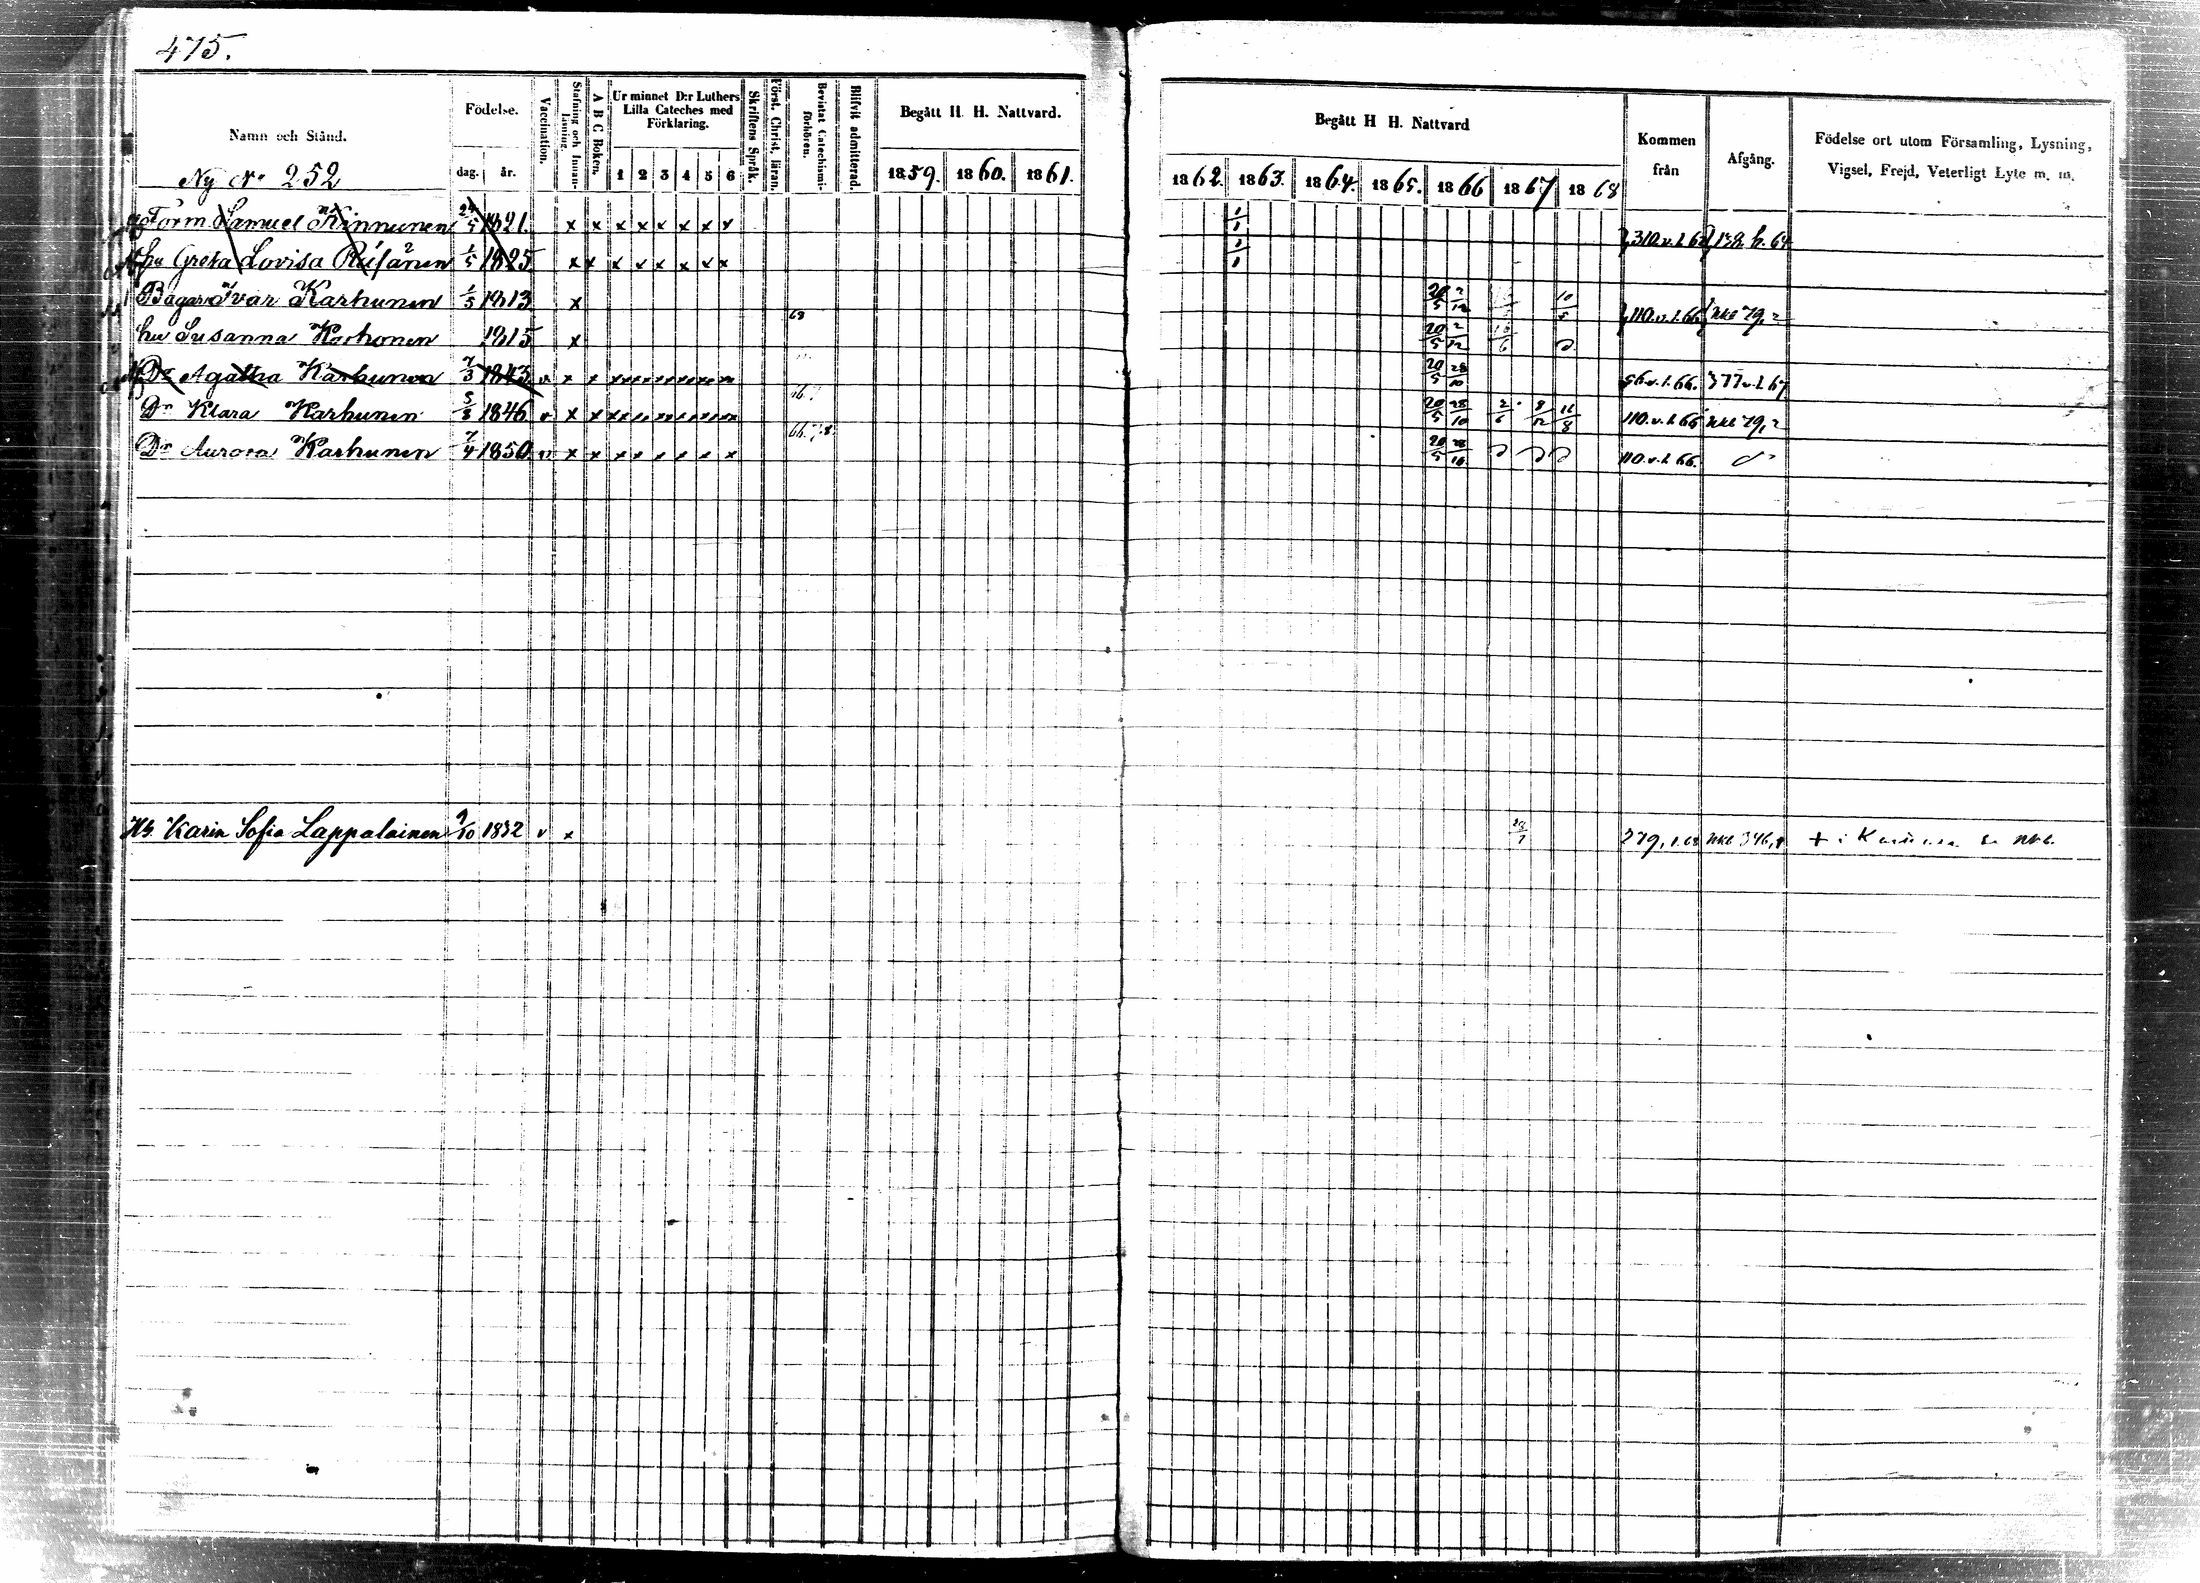 475.
Namn och Stånd. Födelse. Vaccination. Stafning och Innanläsning. A B C Boken. Ur minnet D:r Luthers Lilla Cateches med Förklaring. Skriftens Språk. Först. Christ. läran. Bevistat Catechismiförhören. Blifvit admitterad. Begått H. H. Nattvard. Begått H H. Nattvard Kommen från Afgång. Födelse ort utom Församling, Lysning, Vigsel, Frejd, Veterligt Lyte m. m.
Ny No 252 dag. år. 1 2 3 4 5 6 1859. 1860. 1861. 1862. 1863. 1864. 1865. 1866 1867 1868
Form Samuel Kinnunen 1821. x x x x x x x x 1/1 310.v.1.62
hu Greta Lovisa 1/5 1825 x x x x x x x x 1/1
Bagar Ivar Karhunen 1/5 1813 x 20/5 2/12 10/5 110.v.1.66 nkb 79,2
hu Susanna Karhonen 1815 x 68 20/5 2/12
Dr Agatha Karhunen 7/3 1843 v x x 20/5 28/10 56.v.1.66. 377.v.1.67
Dr Klara Karhunen 5/8 1846 v x x 20/5 28/10 2/6 8/12 11/8 110.v.1.66 nkb 79,2
Dr Aurora Karhunen 7/4 1850 v x x x x x x x x 20/5 28/10 110.v.1.66.
Karin Sofia Lappalainen 9/10 1832 v x 279,1.68 nkb 346, + i nkb.